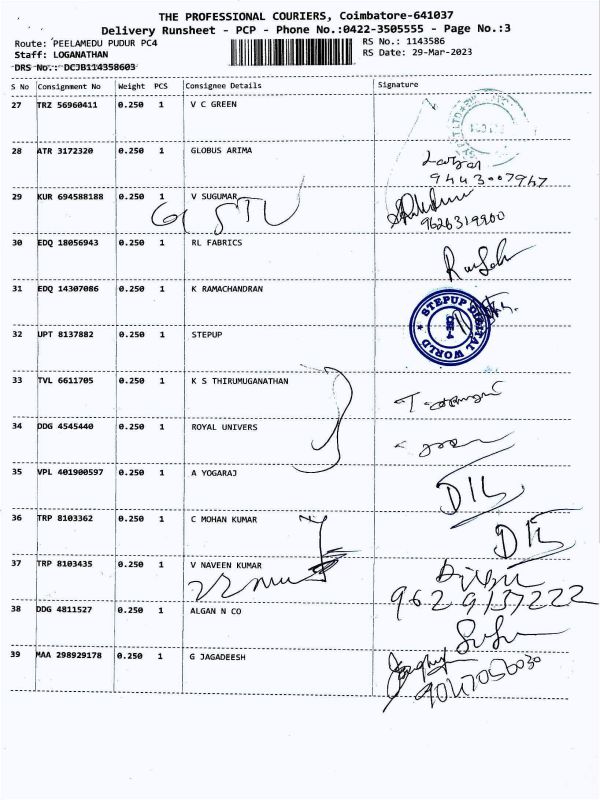 THE PROFESSIONAL COURIERS, Coimbatore-641037
Delivery Runsheet - PCP - Phone No.:0422-3505555 - Page No.:3
Route: PEELAMEDU PUDUR PC4
RS No.: 1143586
Staff: LOGANATHAN
RS Date: 29-Mar-2023
DRS No.: DCJB114358603
S No Consignment No Weight PCS Consignee Details Signature
27 TRZ 56960411 0.250 1 V C GREEN
28 ATR 3172320 0.250 1 GLOBUS ARIMA
9443007947
29 KUR 694588188 0.250 1 V SUGUMAR
9626319900
30 EDQ 18056943 0.250 1 RL FABRICS
31 EDQ 14307086 0.250 1 K RAMACHANDRAN
STEPUP DIGITAL WORLD
CBE-4
32 UPT 8137882 0.250 1 STEPUP
33 TVL 6611705 0.250 1 K S THIRUMUGANATHAN
34 DDG 4545440 0.250 1 ROYAL UNIVERS
35 VPL 401900597 0.250 1 A YOGARAJ
36 TRP 8103362 0.250 1 C MOHAN KUMAR
37 TRP 8103435 0.250 1 V NAVEEN KUMAR
9629137222
38 DDG 4811527 0.250 1 ALGAN N CO
39 MAA 298929178 0.250 1 G JAGADEESH